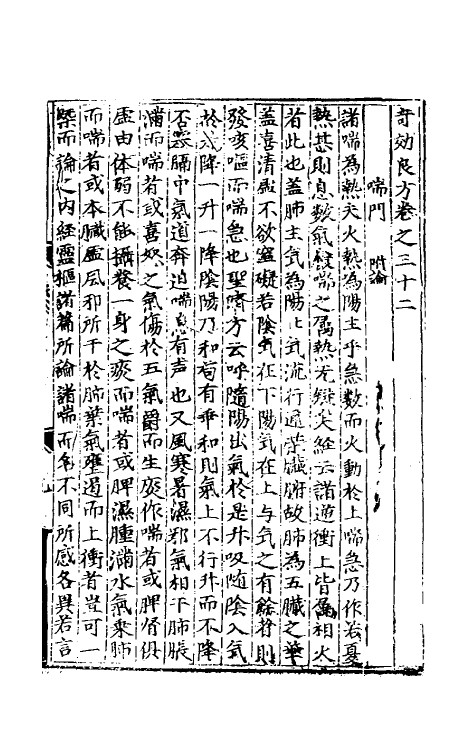 奇効良方卷之三十二
喘門 附論
諸喘為熱夫火熱為陽主乎急数而火動於上喘急乃作若夏
熱甚則息数氣麄喘之属熱无疑矣経云諸逆衝上皆属相火
者此也盖肺主气為陽山气流行通荣臟腑故肺為五臟之華
盖喜清虚不欲窒礙若陰气在下陽气在上与气之有餘者則
發咳嘔而喘急也聖濟方云呼隨陽出氣於是升吸随陰入氣
於是降一升一降陰陽乃和苟有乖和則氣上不行升而不降
否塞膈中氣道奔迫喘息有声也又風寒暑濕邪氣相干肺脹
滿而喘者或喜怒之氣傷於五氣欝而生痰作喘者或脾腎俱
虛由体弱不能攝養一身之痰而喘者或脾濕腫滿水氣乘肺
而喘者或本臟虛風邪所干於肺葉氣壅遏而上衝者豈可一
槩而論之内経靈樞諸篇所論諸喘而名不同所感各異若言